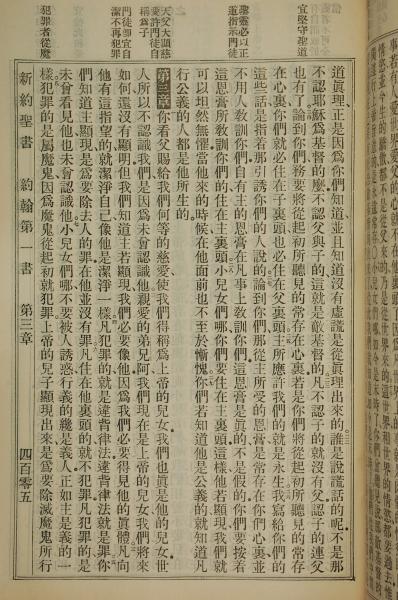 道眞理正是因爲你們知道並且知道沒有虛謊是從眞理出來的誰是說謊話的呢不是那
不認耶穌爲基督的麼不認父與子的這就是敵基督的凡不認子的就沒有父認子的連父
也有了論到你們務要將從起初所聽見的常存在心裏若是你們將從起初所聽見的常存
在心裏你們就必住在子裏頭也必住在父裏頭主所應許我們的就是永生我寫給你們的
這些話是指着那引誘你們的人說的論到你們那從主所受的恩膏是常存在你們心裏並
不用人敎訓你們自有主的恩膏在凡事上敎訓你們這恩膏是眞的不是假的你們要按着
這恩膏所敎訓你們的住在主裏頭小兒女們哪你們要住在主裏頭這樣他若顯現我們就
可以坦然無懼當他來的時候在他面前也不至於慚愧你們若知道他是公義的就知道凡
行公義的人都是他所生的
第三章你看父賜給我們何等的慈愛使我們得稱爲上帝的兒女我們也眞是他的兒女世
人所以不認識我們是因爲未曾認識他親愛的弟兄阿我們現在是上帝的兒女我們將來
如何還沒有顯明但我們知道主若顯現我們必要像他因爲我們必要得見他的眞體凡向
他有這指望的就潔淨自己像他是潔淨一樣凡犯罪的就是違背律法違背律法就是罪你
們知道主顯現是爲要除去人的罪在他並沒有罪凡住在他裏頭的就不犯罪凡犯罪的是
未曾看見他也未曾認識他小兒女們哪不要被人誘惑行義的纔是義人正如主是義的一
樣犯罪的是屬魔鬼因爲魔鬼從起初就犯罪上帝的兒子顯現出來是爲要除滅魔鬼所行
宜堅守聖道
聖靈必以正
道指示門徒
天父大顯慈
愛許門徒自
稱爲子
門徒卽宜自
潔不再犯罪
犯罪者從魔
新約聖書 約翰第一書 第三章 四百零五